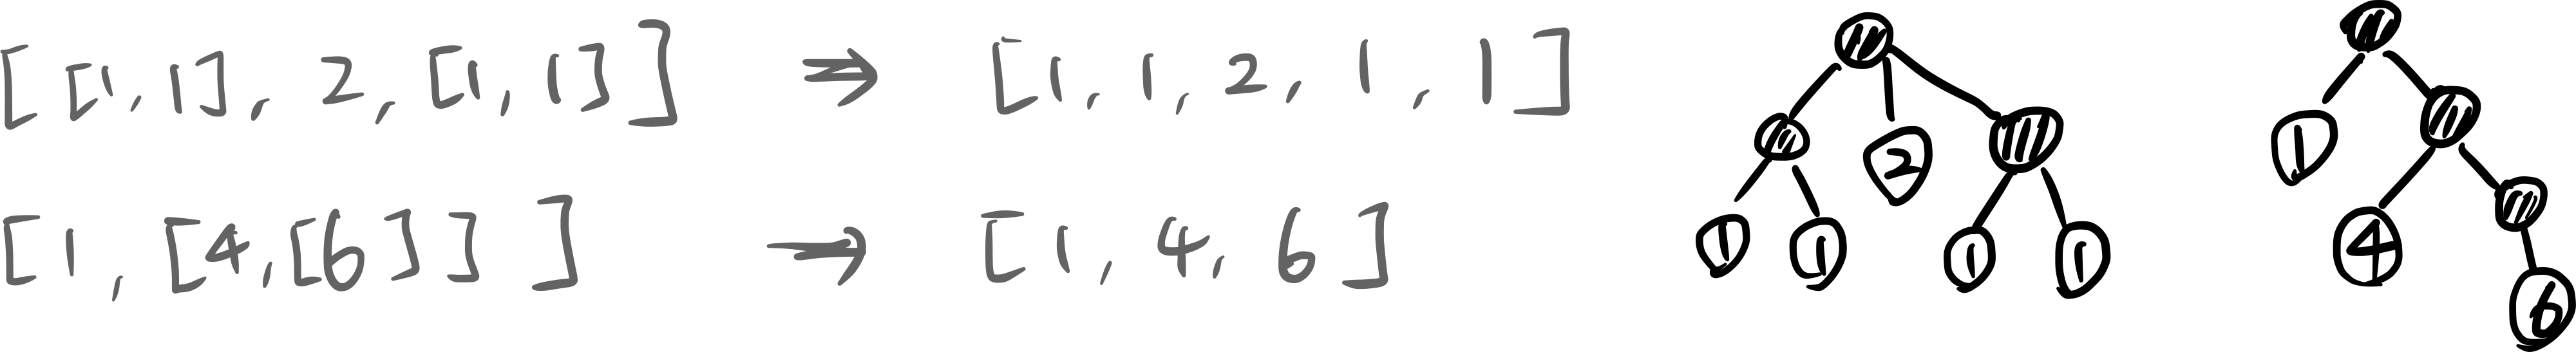 [[1,1], 2, [1,1]] ⇒ [1, 1, 2, 1, 1]
[1, [4,[6]]] → [1, 4, 6]
2
1
1 1 1 1
4
6
1